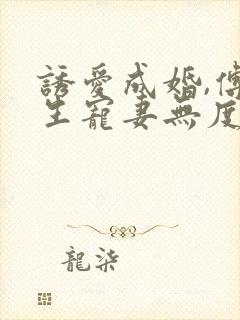 誘愛成婚,傅
生寵妻無度
龍柒